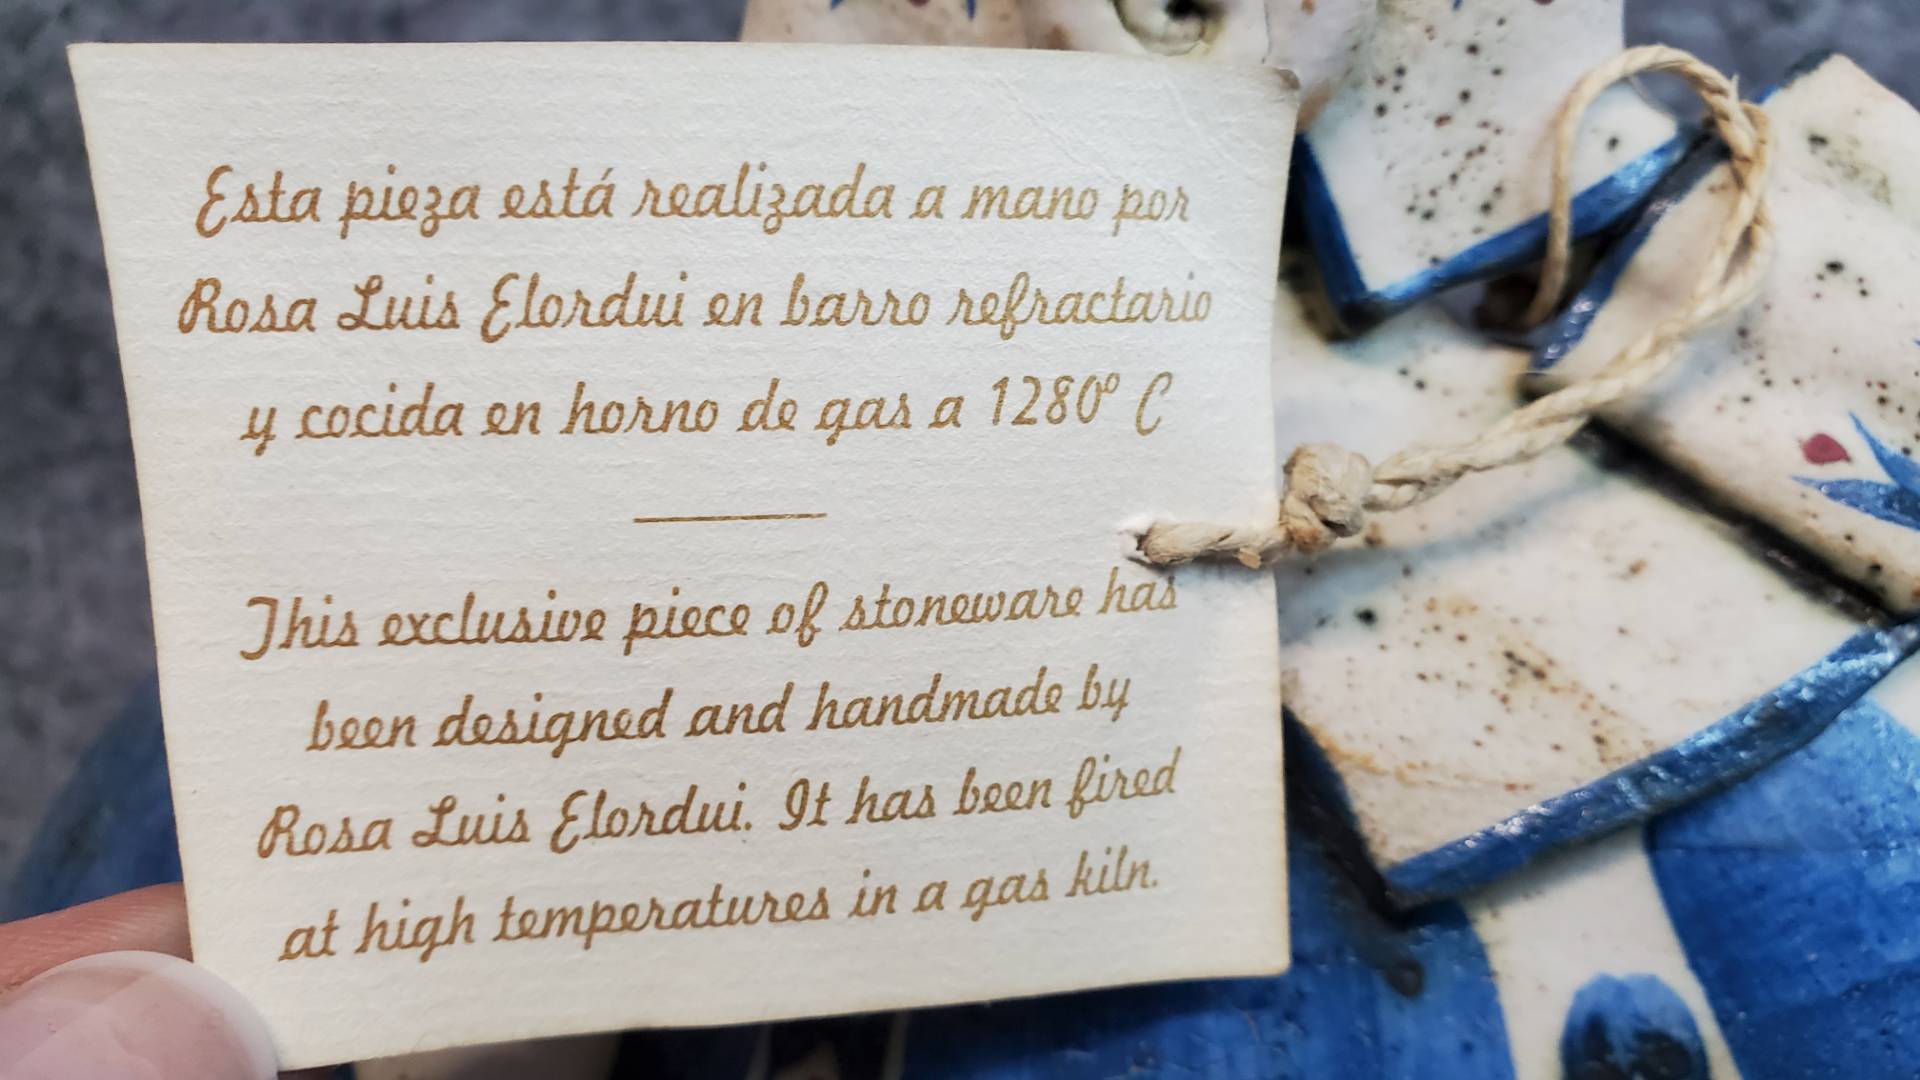 Esta pieza está realizada a mano por
Rosa Luis Elordui en barro refractario
y cocida en horno de gas a 1280º C
This exclusive piece of stoneware has
been designed and handmade by
Rosa Luis Elordui. It has been fired
at high temperatures in a gas kiln.